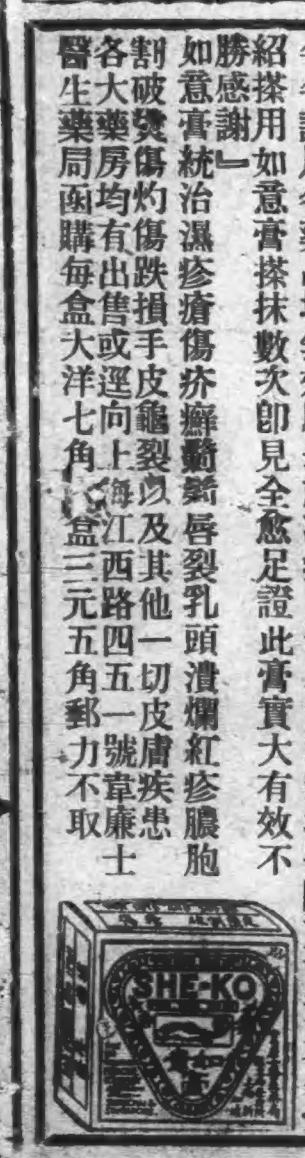 紹搽用如意膏搽抹數次卽見全愈足證此膏實大有效不
勝感謝』
如意膏統治濕疹瘡傷疥癬唇裂乳頭潰爛紅疹膿胞
割破燙傷灼傷跌損手皮龜裂以及其他一切皮膚疾患
各大藥房均有出售或逕向上海江西路四五一號韋廉士
醫生藥局函購每盒大洋七角盒三元五角郵力不取
SHE-KO
如意膏